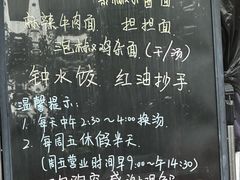 麻辣牛肉面 担担面
泡椒鸡杂面（干/汤）
钟水饺 红油抄手
温馨提示：
1. 每天中午2:30~4:00换汤.
2. 每周五休假半天.
（周五营业时间早9:00~午14:30）